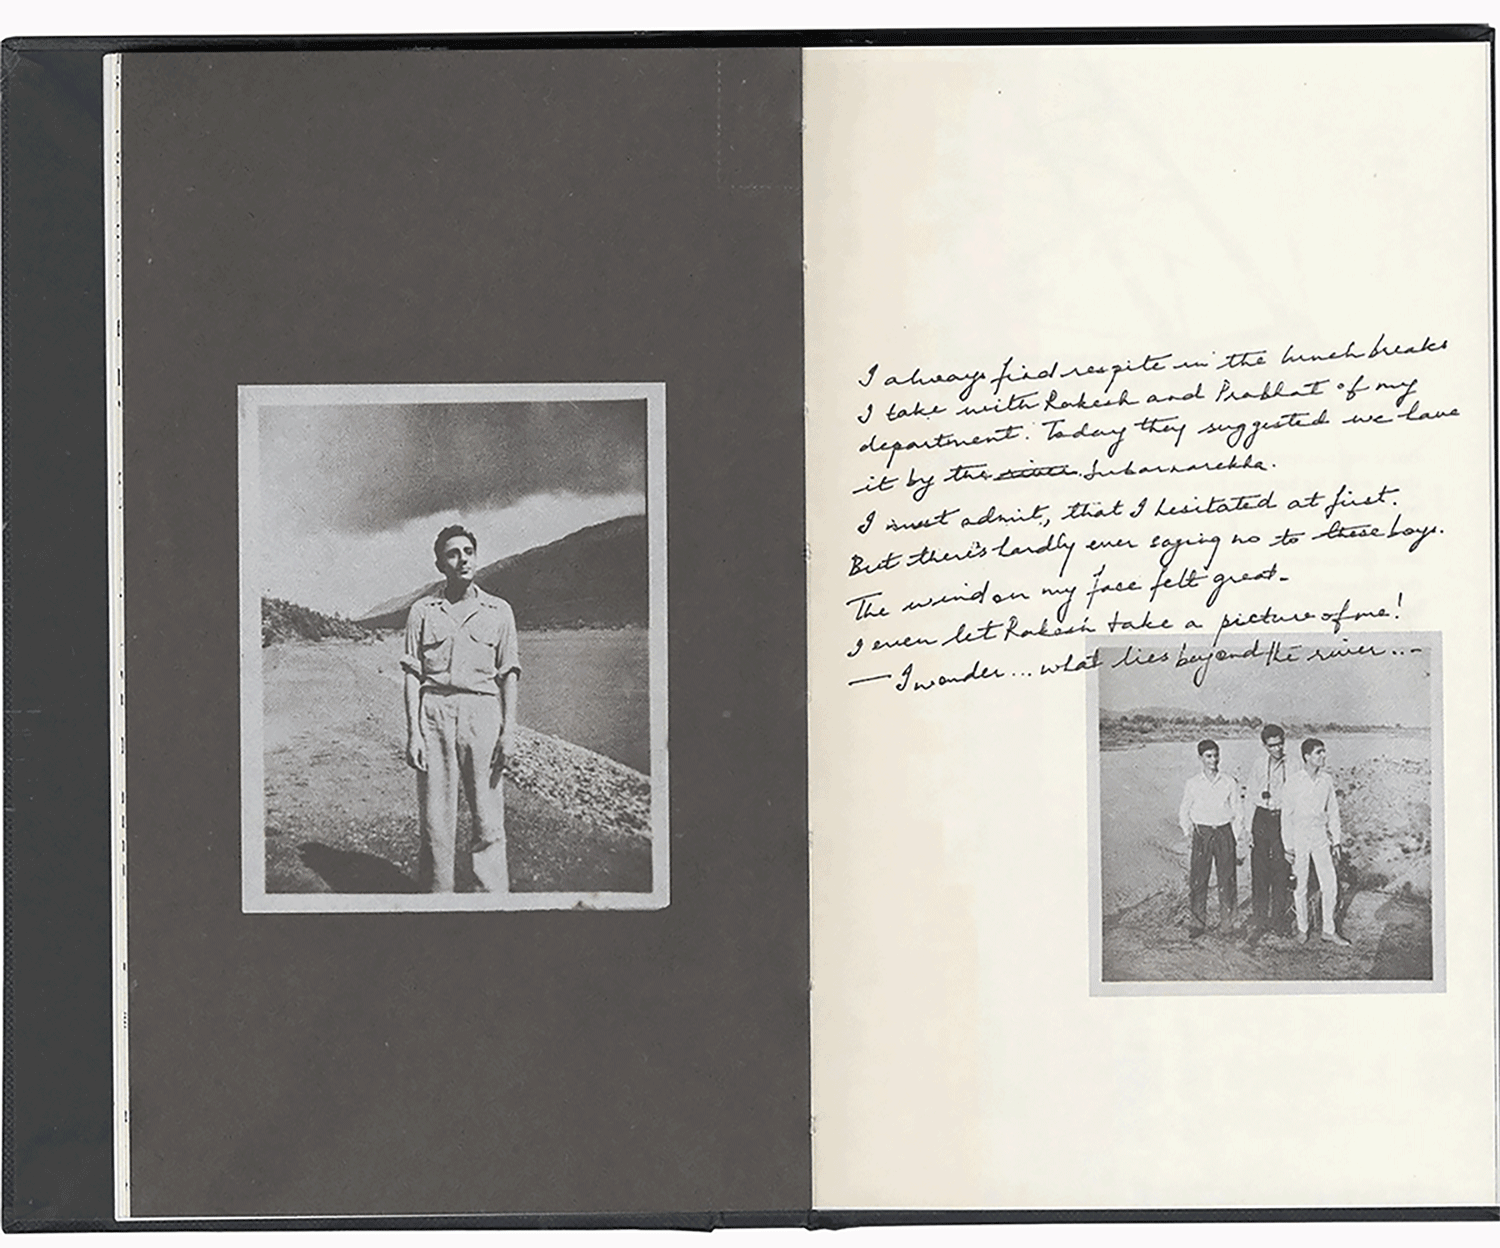 I always find respite in the lunch breaks
I take with Rakesh and Prabhat of my
department. Today they suggested we have
it by the river Subarnarekha.
I must admit, that I hesitated at first.
But there's hardly ever saying no to these boys.
The wind on my face felt great-
I even let Rakesh take a picture of me!
— I wonder... what lies beyond the river...-